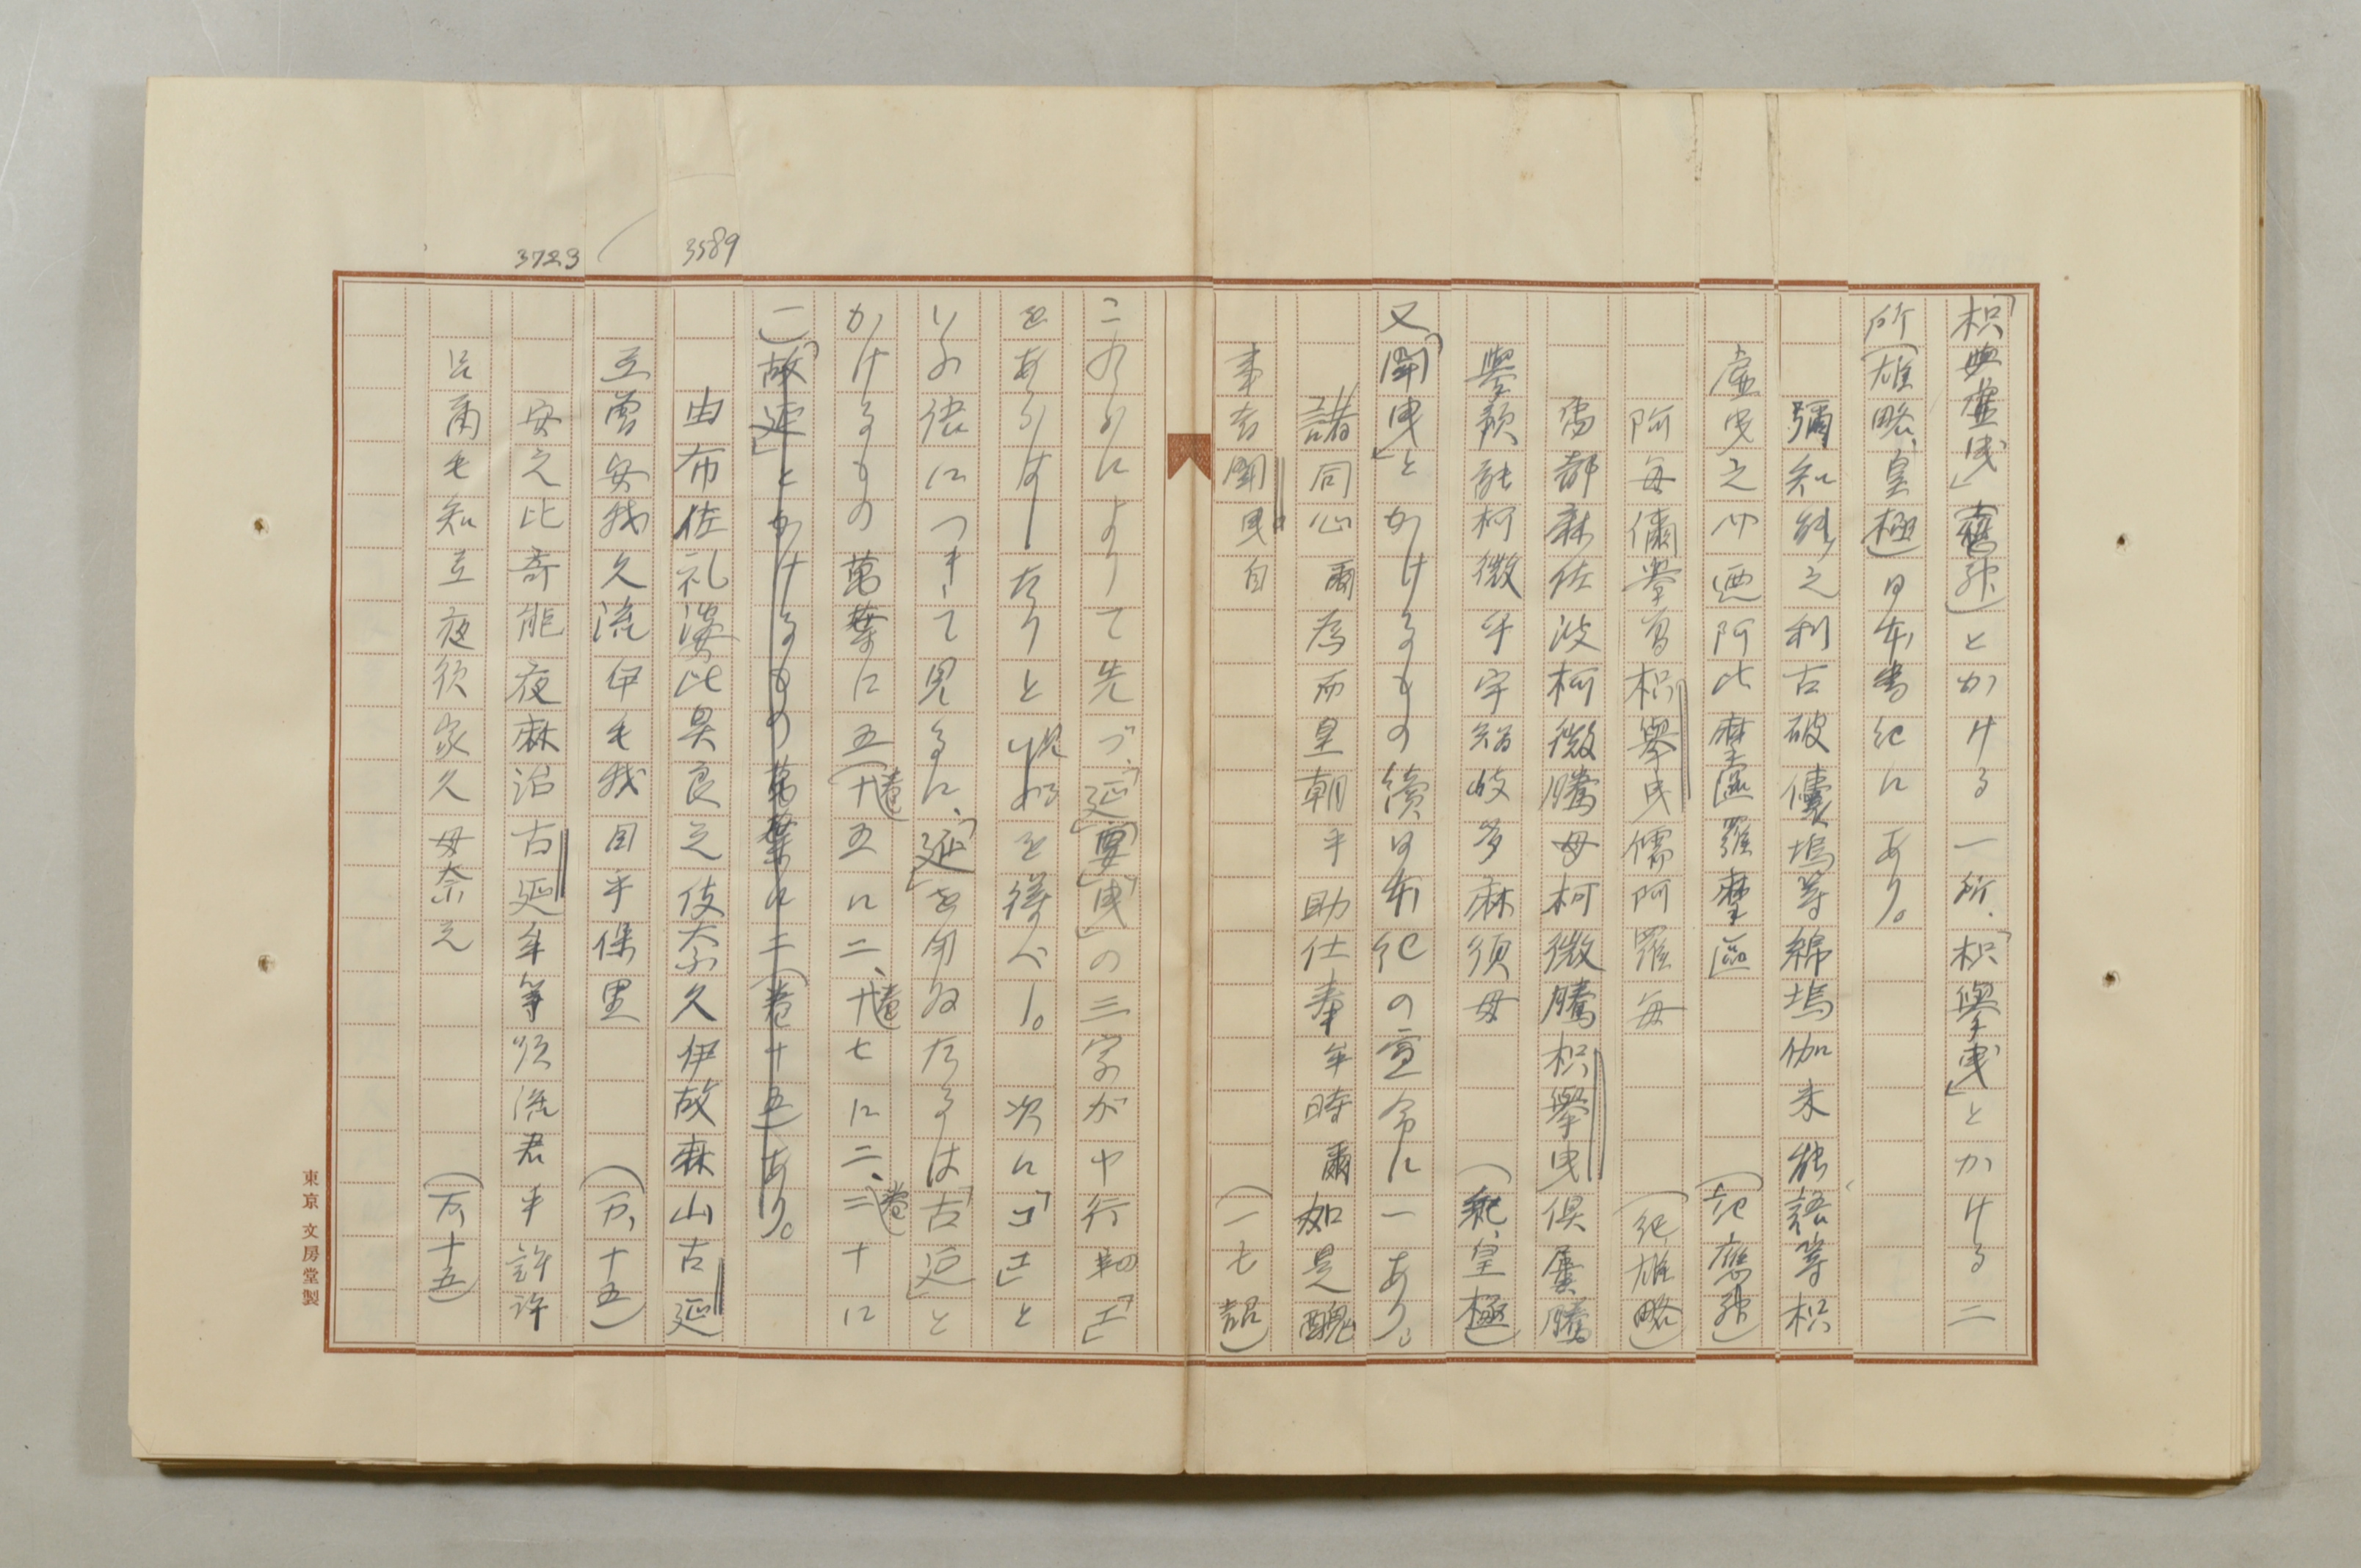 「枳與曳」(應神)とかける一所、「枳擧曳」とかける二
所(雄略、皇極)日本書紀にあり。
彌知能之利古破儾塢等綿塢伽未能語等枳
虚曳之介廼阿比摩區羅摩區
(記應神)
阿每儞擧曾枳擧曳儒阿羅每
(紀雄略)
烏都麻佐波柯微騰母柯微騰枳擧曳倶屢騰
擧預能柯微乎宇智岐多麻須母
(紀皇極)
又「聞曳」とかけるもの續日本紀の宣命に一あり。
諸同心爾為而皇朝乎助仕奉牟時爾如是醜
事者聞曳自
(一七詔)
これらによりて先づ、「延」「要」「曳」の三字がヤ行韵「エ」
をあらはしたりと見做を得べし。次に「コエ」と
いふ語につきて見るに、「延」を用ゐたるは「古延」と
かけるもの萬葉に五(卷十五に二、卷十七に二、卷二十に
一)「故延」とかけるもの萬葉に二(卷十五)あり。
3589
由布佐礼婆比具良之伎奈久伊故麻山古延
弖曾安我久流伊毛我目乎保里
(万、十五)
3723
安之比奇能夜麻治古延牟等須流君乎許許
呂爾毛知弖夜須家久母奈之
(万、十五)
東京 文房堂製